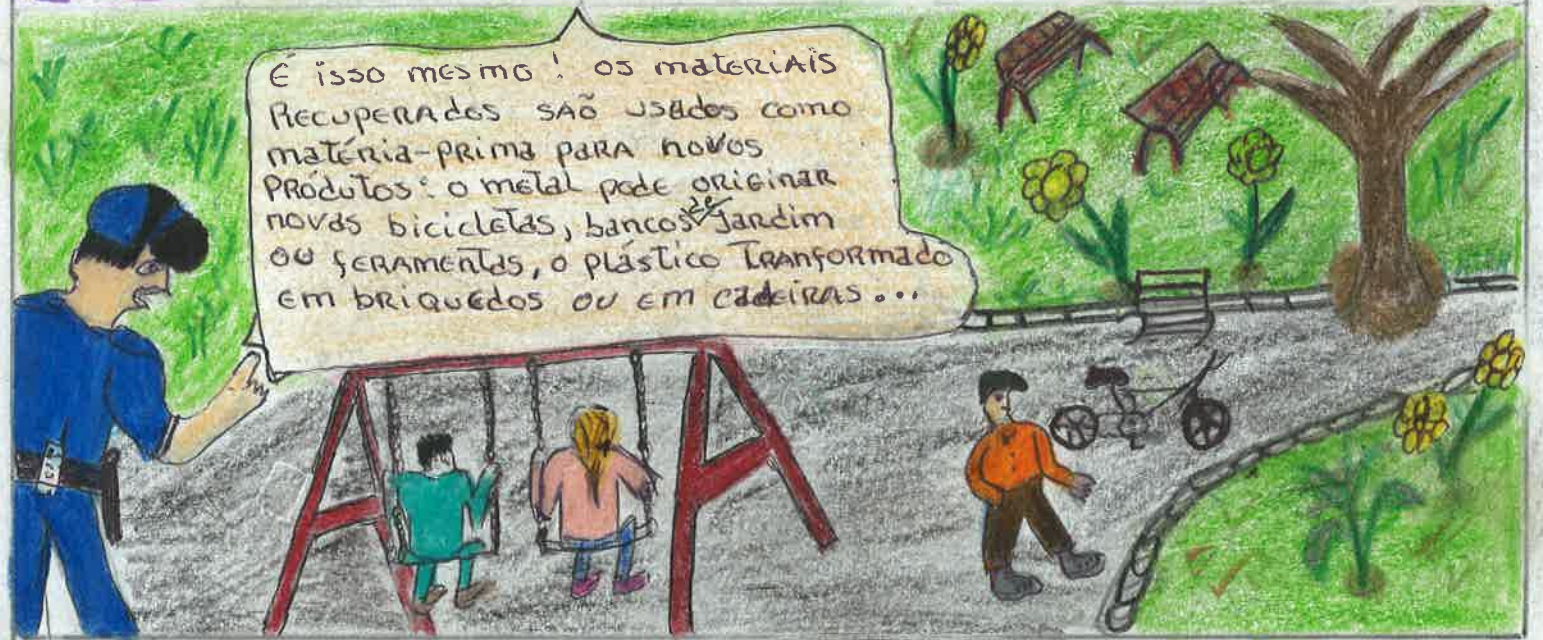 É isso mesmo! os materiais
Recuperados são usados como
matéria-prima para novos
Produtos: o metal pode originar
novas bicicletas, bancos de Jardim
ou feramentas, o plástico Tranformado
em briquedos ou em cadeiras...